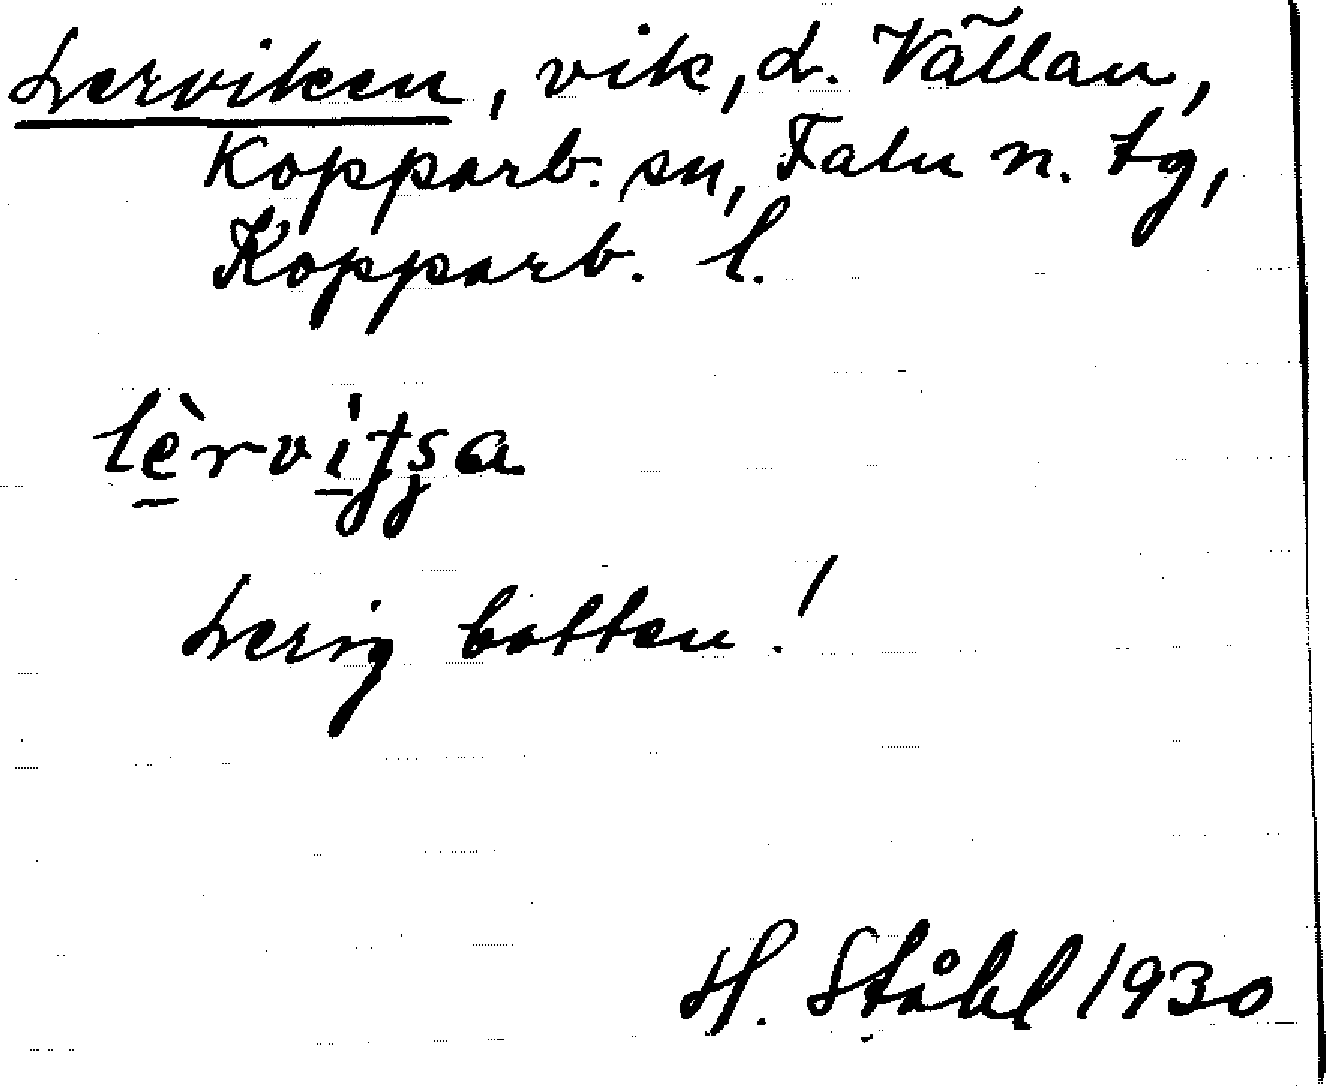 Lerviken, vik, L. Vällan,
Kopparb. sn, Falu n. tg,
Kopparb. l.
lèrvit̠ʂa
Lerig botten!
H. Ståhl 1930